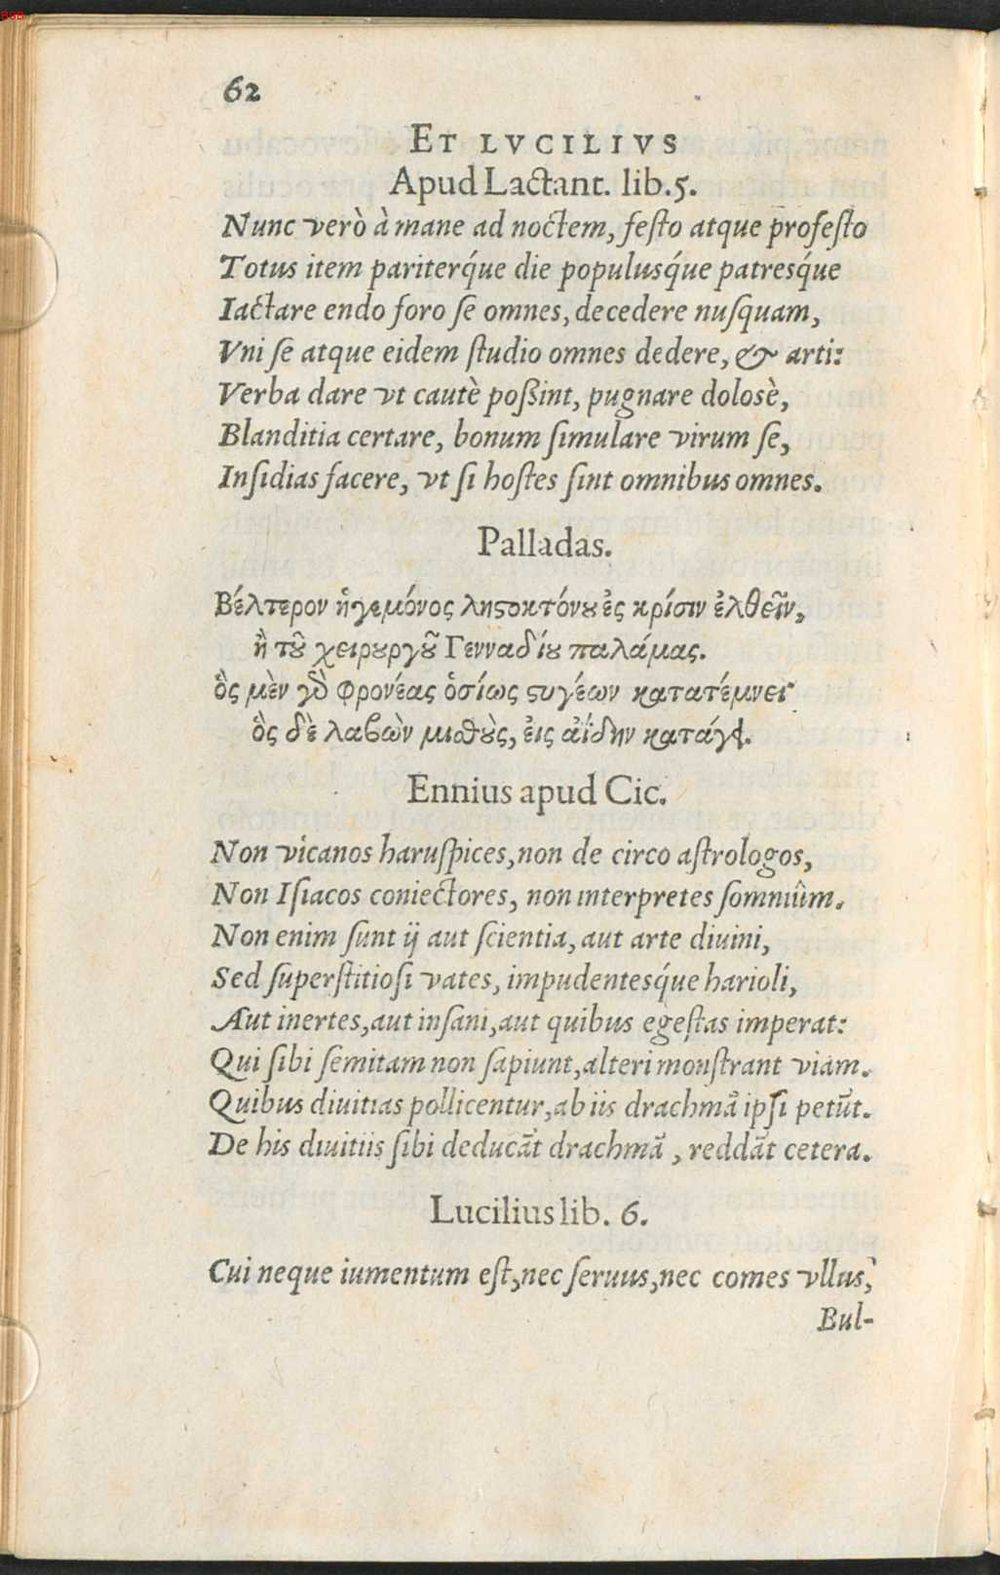 62
ET LVCILIVS
Apud Lactant. lib.5.
Nunc verò à mane ad noctem, festo atque profesto
Totus item pariterq́ue die populusq́ue patresq́ue
Iactare endo foro se omnes, decedere nusquam,
Vni se atque eidem studio omnes dedere, & arti:
Verba dare vt cautè poßint, pugnare dolosè,
Blanditia certare, bonum simulare virum se,
Insidias facere, vt si hostes sint omnibus omnes.
Palladas.
Βέλτερον ἡγεμόνος ληϛοκτόνȣ ἐς κρίσιν ἐλθεῖν,
ἢ τȣ͂ χειρȣργȣ͂ Γενναδίȣ παλάμας.
ὃς μὲν γὸ φρονέας ὁσίως ϛυγέων κατατέμνει·
ὃς δὲ λαβὼν μισθȣ̀ς, εἰς ἀΐδην κατάγει.
Ennius apud Cic.
Non vicanos haruspices, non de circo astrologos,
Non Isiacos coniectores, non interpretes somniûm.
Non enim sunt ij aut scientia, aut arte diuini,
Sed superstitiosi vates, impudentesq́ue harioli,
Aut inertes, aut insani, aut quibus egestas imperat:
Qui sibi semitam non sapiunt, alteri monstrant viam.
Quibus diuitias pollicentur, ab iis drachmã ipsi petũt.
De his diuitiis sibi deducãt drachmã, reddãt cetera.
Lucilius lib. 6.
Cui neque iumentum est, nec seruus, nec comes vllus,
Bul-